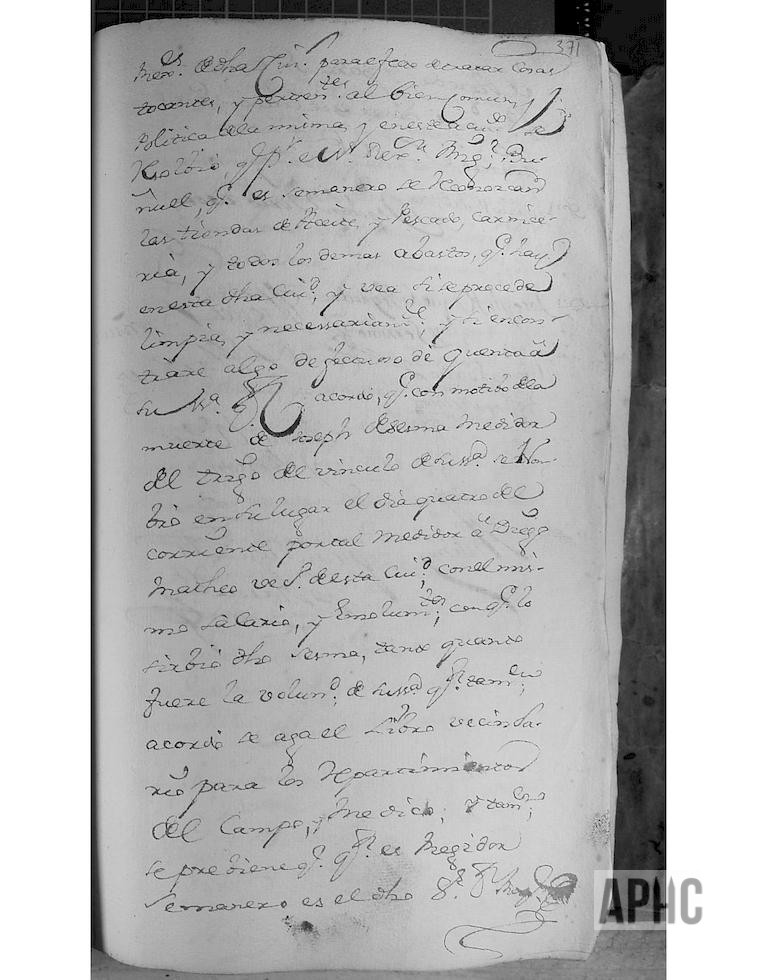 371
Rex.es de dha Ciu.d para efecto de tratar cosas
tocantes, y pertten.tes al bien Comun, y
Politica de la misma, y en esta Ciu.d se
Resolvio, q.e
nuel, q.e es semanero se Reconozcan
las tiendas de Aceite, y Pescado, carnice-
ria, y todos los demas abastos, q.e hay
en esta dha Ciu.d, y vea si se procede
limpia, y necessariam.te y si encon-
trare algo defectuoso de quenta a
su Ss.a acordó, q.e con motibo de la
muerte de Joseph de Sesma Medidor
del trigo del vinculo de su Ss.a se Nom-
bro en su lugar el dia quatro del
corriente por tal Medidor a Diego
Matheo ve.o de esta Ciu.d, con el mis-
mo salario, y Emolum.tos, con q.e lo
sirbió dho Sesma, tanto quanto
fuere la volun.d de su Ss.a q.n tam.bien
acordo se aga el Libro vecinda-
rio para los Repartimientos
del Campo, y Medico, y tam.bien
se prebiene q.e q.n es Regidor
semanero es el dho S.r
APHC